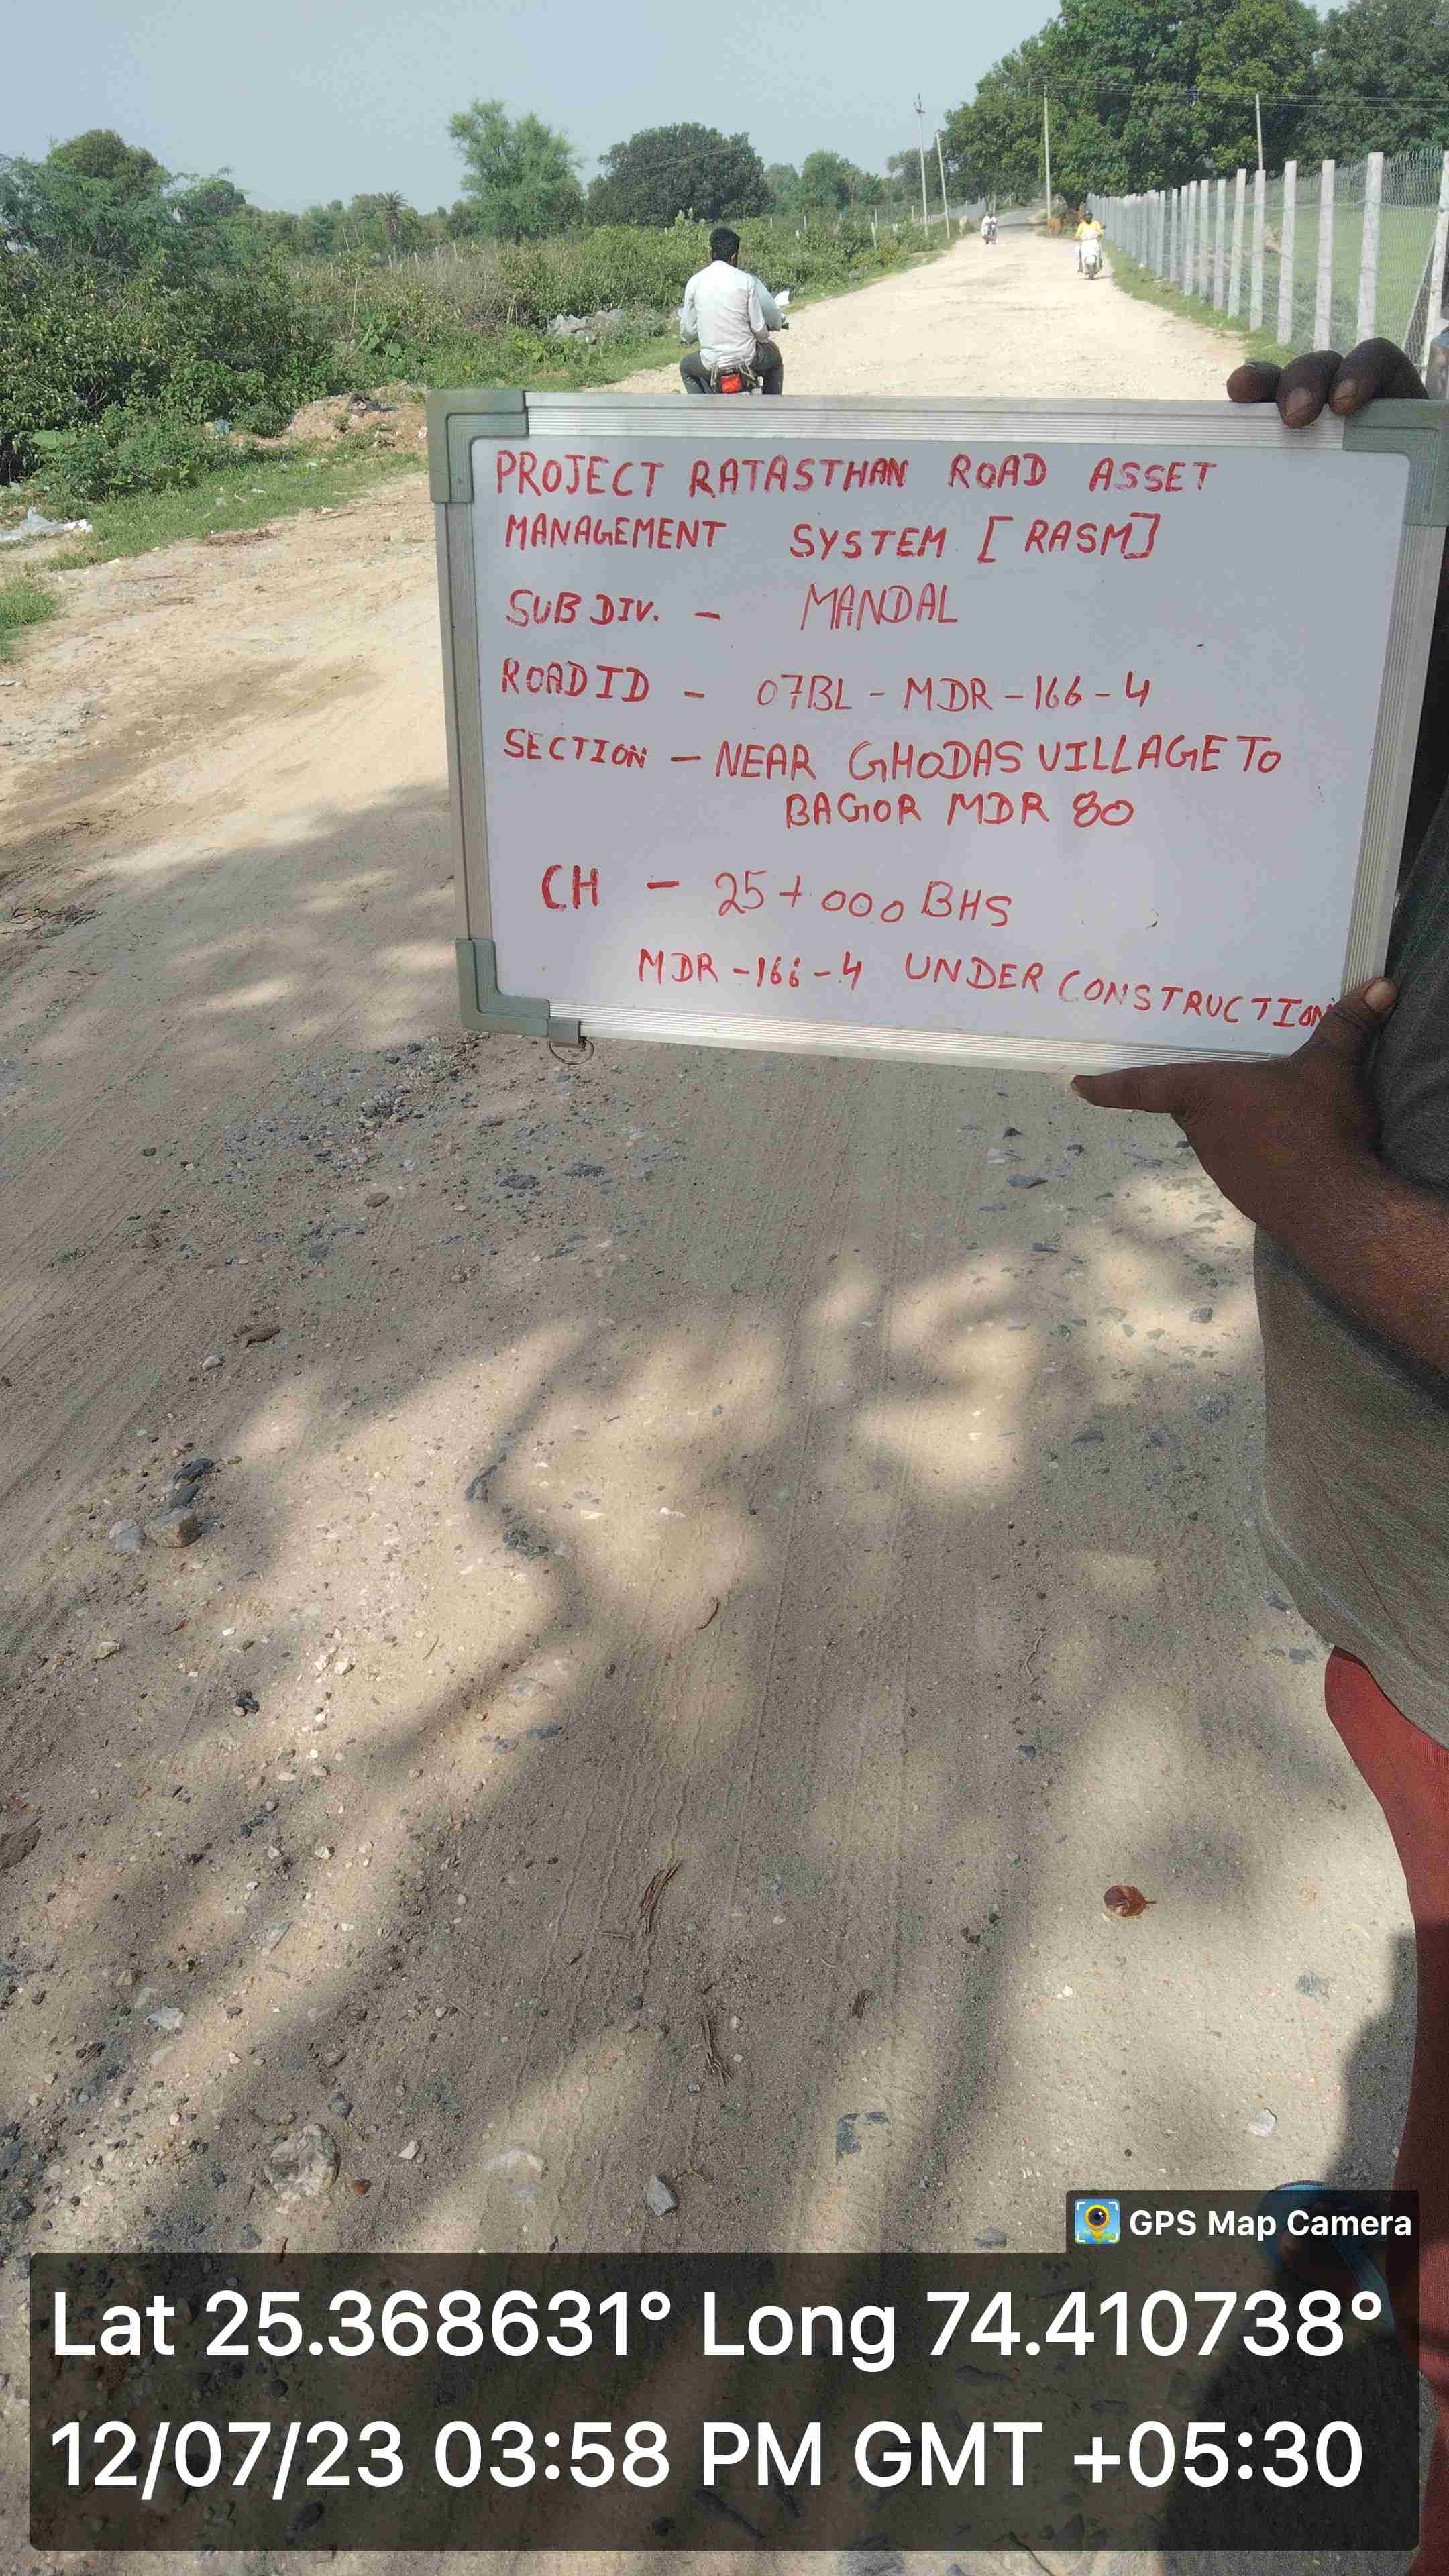 PROJECT RATASTHAN ROAD ASSET
MANAGEMENT SYSTEM [RASM]
SUB DIV. - MANDAL
ROAD ID - 07BL - MDR - 166 - 4
SECTION - NEAR GHODAS VILLAGE TO
BAGOR MDR 80
CH - 25+000 BHS
MDR -166-4 UNDER CONSTRUCTION
GPS Map Camera
Lat 25.368631° Long 74.410738°
12/07/23 03:58 PM GMT +05:30